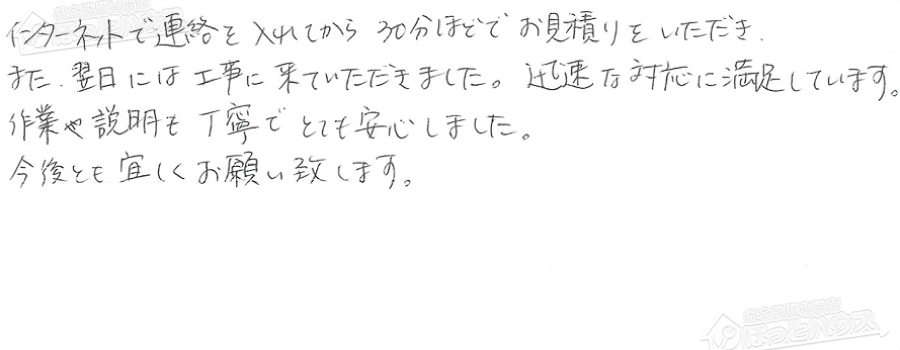 インターネットで連絡を入れてから30分ほどでお見積りをいただき.
また、翌日には工事に来ていただきました。迅速な対応に満足しています。
作業や説明も丁寧でとても安心しました。
今後とも宜しくお願い致します。
住宅設備専門店
ほっとハウス